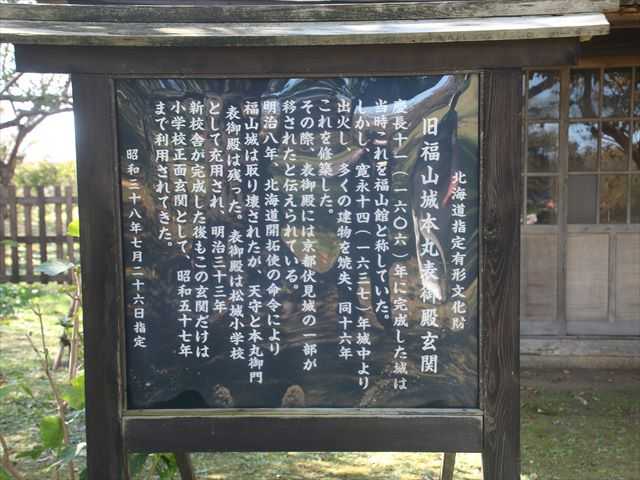 北海道指定有形文化財
旧福山城本丸表御殿玄関
慶長十一(一六〇六)年に完成した城は
当時これを福山館と称していた。
しかし、寛永十四(一六三七)年城中より
出火し、多くの建物を焼失、同十六年
これを修築した。
その際、表御殿には京都伏見城の一部が
移されたと伝えられている。
明治八年、北海道開拓使の命令により
福山城は取り壊されたが、天守と本丸御門
表御殿は残った。表御殿は松城小学校
として充用され、明治三十三年
新校舎が完成した後もこの玄関だけは
小学校正面玄関として、昭和五十七年
まで利用されてきた。
昭和三十八年七月二十六日指定